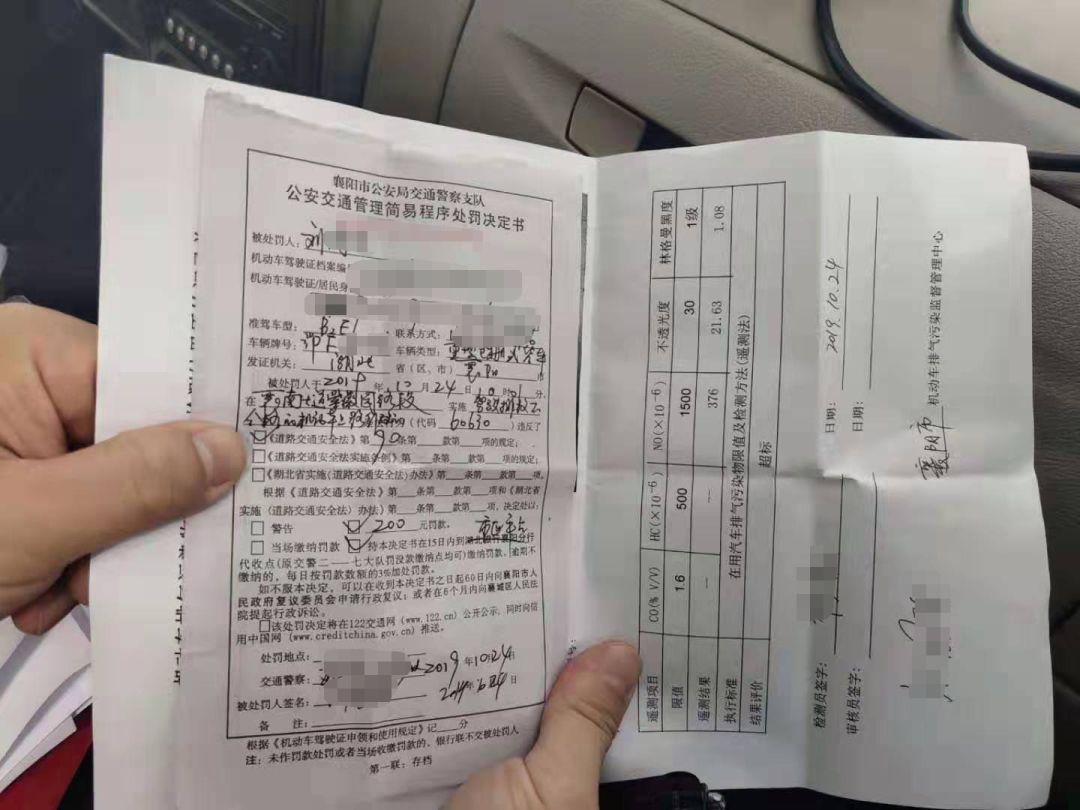 襄阳市公安局交通警察支队
公安交通管理简易程序处罚决定书
被处罚人：刘
机动车驾驶证档案编
机动车驾驶证/居民身
准驾车型：B2E1 联系方式：
车辆牌号：鄂F 车辆类型：
发证机关：湖北 省（区、市）襄阳 市
被处罚人于2019年10月24日10时 分，
在 实施
（代码 60630 ）违反了
《道路交通安全法》第90条第 款第 项的规定；
《道路交通安全法实施条例》第 条第 款第 项的规定；
《湖北省实施〈道路交通安全法〉办法》第 条第 款第 项。
根据《道路交通安全法》第 条第 款第 项和《湖北省
实施〈道路交通安全法〉办法》第 条第 款第 项，决定处以：
警告 200元罚款。
当场缴纳罚款 持本决定书在15日内到湖北银行襄阳分行
代收点（原交警二——七大队罚没款缴纳点均可）缴纳罚款。逾期不
缴纳的，每日按罚款数额的3%加处罚款。
如不服本决定，可以在收到本决定书之日起60日内向襄阳市人
民政府复议委员会申请行政复议；或者在6个月内向襄城区人民法
院提起行政诉讼。
该处罚决定将在122交通网（www.122.cn）公开公示，同时向信
用中国网（www.creditchina.gov.cn）推送。
处罚地点：
交通警察： 2019年10月24日
被处罚人签名： 2019年10月24日
备 注：
根据《机动车驾驶证申领和使用规定》记 分
注：未作罚款处罚或者当场收缴罚款的，银行联不交被处罚人
第一联：存档
遥测项目 CO(% V/V) HC(×10-6) NO(×10-6) 不透光度 林格曼黑度
限值 1.6 500 1500 30 1级
遥测结果 — — 376 21.63 1.08
执行标准 在用汽车排气污染物限值及检测方法(遥测法)
结果评价 超标
检测员签字： 日期：2019.10.24
审核员签字： 日期：
襄阳市机动车排气污染监督管理中心